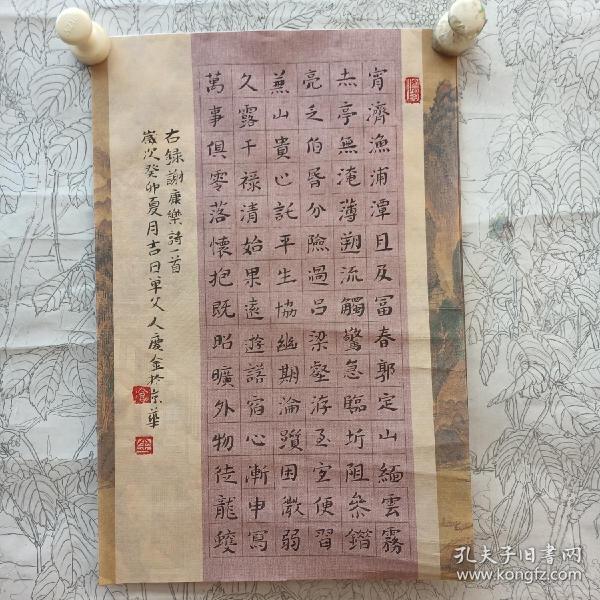 宵濟漁浦潭旦及富春郭定山緬雲霧
赤亭無淹薄朔流觸驚急臨圻阻參錯
亮乏伯昏分險過呂梁壑游至宜便習
兼山貴止託平生協幽期淪躓困微弱
久露干禄清始果遠遊諾宿心漸申寫
萬事俱零落懷抱既昭曠外物徒龍蠖
右録謝康樂詩一首
歲次癸卯夏月吉日單父人慶金於京華
孔夫子旧书网
www.kongfz.com